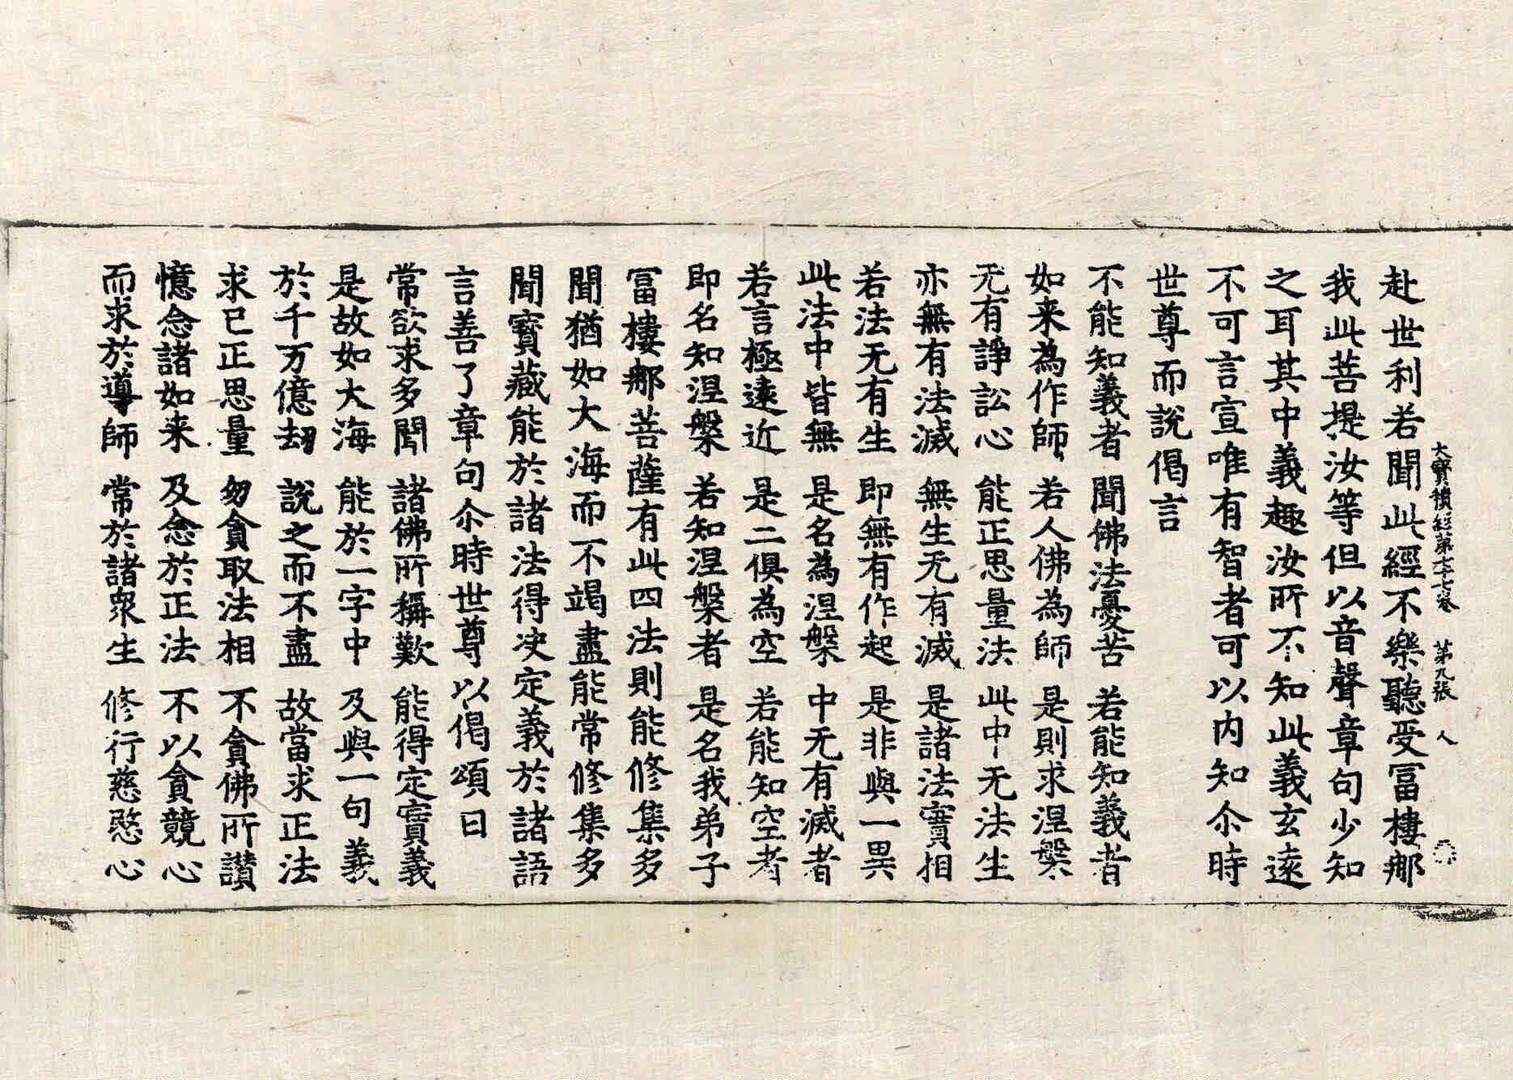 大寶積經第七十七卷 第九張 人
赴世利若聞此經不樂聽受冨樓那
我此菩提汝等但以音聲章句少知
之耳其中義趣汝所不知此義玄遠
不可言宣唯有智者可以内知尒時
世尊而說偈言
不能知義者 聞佛法憂苦 若能知義者
如来為作師 若人佛為師 是則求涅槃
无有諍訟心 能正思量法 此中无法生
亦無有法滅 無生无有滅 是諸法實相
若法无有生 即無有作起 是非與一異
此法中皆無 是名為涅槃 中无有滅者
若言極遠近 是二俱為空 若能知空者
即名知涅槃 若知涅槃者 是名我弟子
冨樓那菩薩有此四法則能修集多
聞猶如大海而不竭盡能常修集多
聞寳藏能於諸法得决定義於諸語
言善了章句尒時世尊以偈頌曰
常欲求多聞 諸佛所稱歎 能得定實義
是故如大海 能於一字中 及與一句義
於千万億劫 說之而不盡 故當求正法
求已正思量 勿貪取法相 不貪佛所讃
憶念諸如来 及念於正法 不以貪競心
而求於導師 常於諸衆生 修行慈愍心